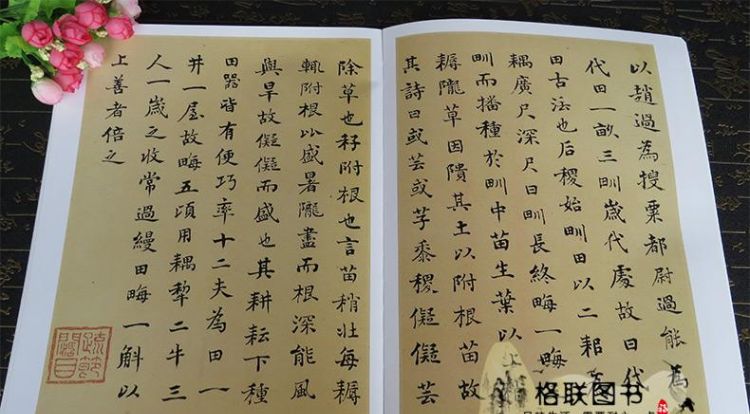 以趙過為搜粟都尉過能為
代田一畝三甽歲代處故曰代
田古法也后稷始甽田以二耜為
耦廣尺深尺曰甽長終晦一晦
甽而播種於甽中苗生葉以上
耨隴草因隤其土以附根苗故
其詩曰或芸或芓黍稷儗儗芸
除草也秄附根也言苗稍壯每耨
輒附根比盛暑隴盡而根深能風
與旱故儗儗而盛也其耕耘下種
田器皆有便巧率十二夫為田一
井一屋故晦五頃用耦犁二牛三
人一歲之收常過縵田晦一斛以
上善者倍之
疏節闊目
格联图书